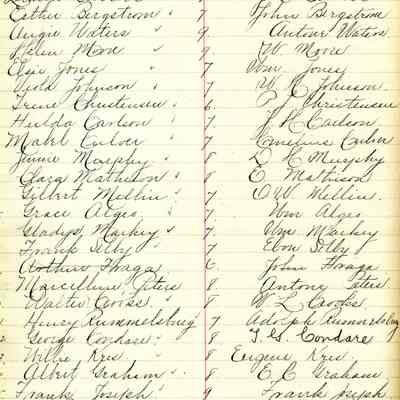 Esther Bergstrom " 7 John Bergstrom
Angie Waters " 9 Antone Waters
Helen Moon " 9 W. Moore
Elsie Jones " 7 Wm Jones
Viola Johnson " 7 W. C. Johnson
Irene Christensen " 6 P. J. Christensen
Hulda Carlson " 7 J. A. Carlson
Mabel Culver " 7 Culver
Jimmie Murphy " 8 D. C. Murphy
Clara Mathison " 8 E. Mathison
Gilbert Mellin " 7 O. W. Mellin
Grace Alges " 7 Wm Alges
Gladys Markey " 7 Wm Markey
Frank Selby " 7 Eben Selby
Arthur Fraga 6 John Fraga
Marcelline Peters 8 Antone Peters
Walter Crooks 8 W. L. Crooks
Henry Rummelsburg 7 Adolph Rummelsburg
George Condare 8 T. G. Condare
Willie Kru " 8 Eugene Kru
Albert Graham " 8 E. C. Graham
Frank Joseph 9 Frank Joseph